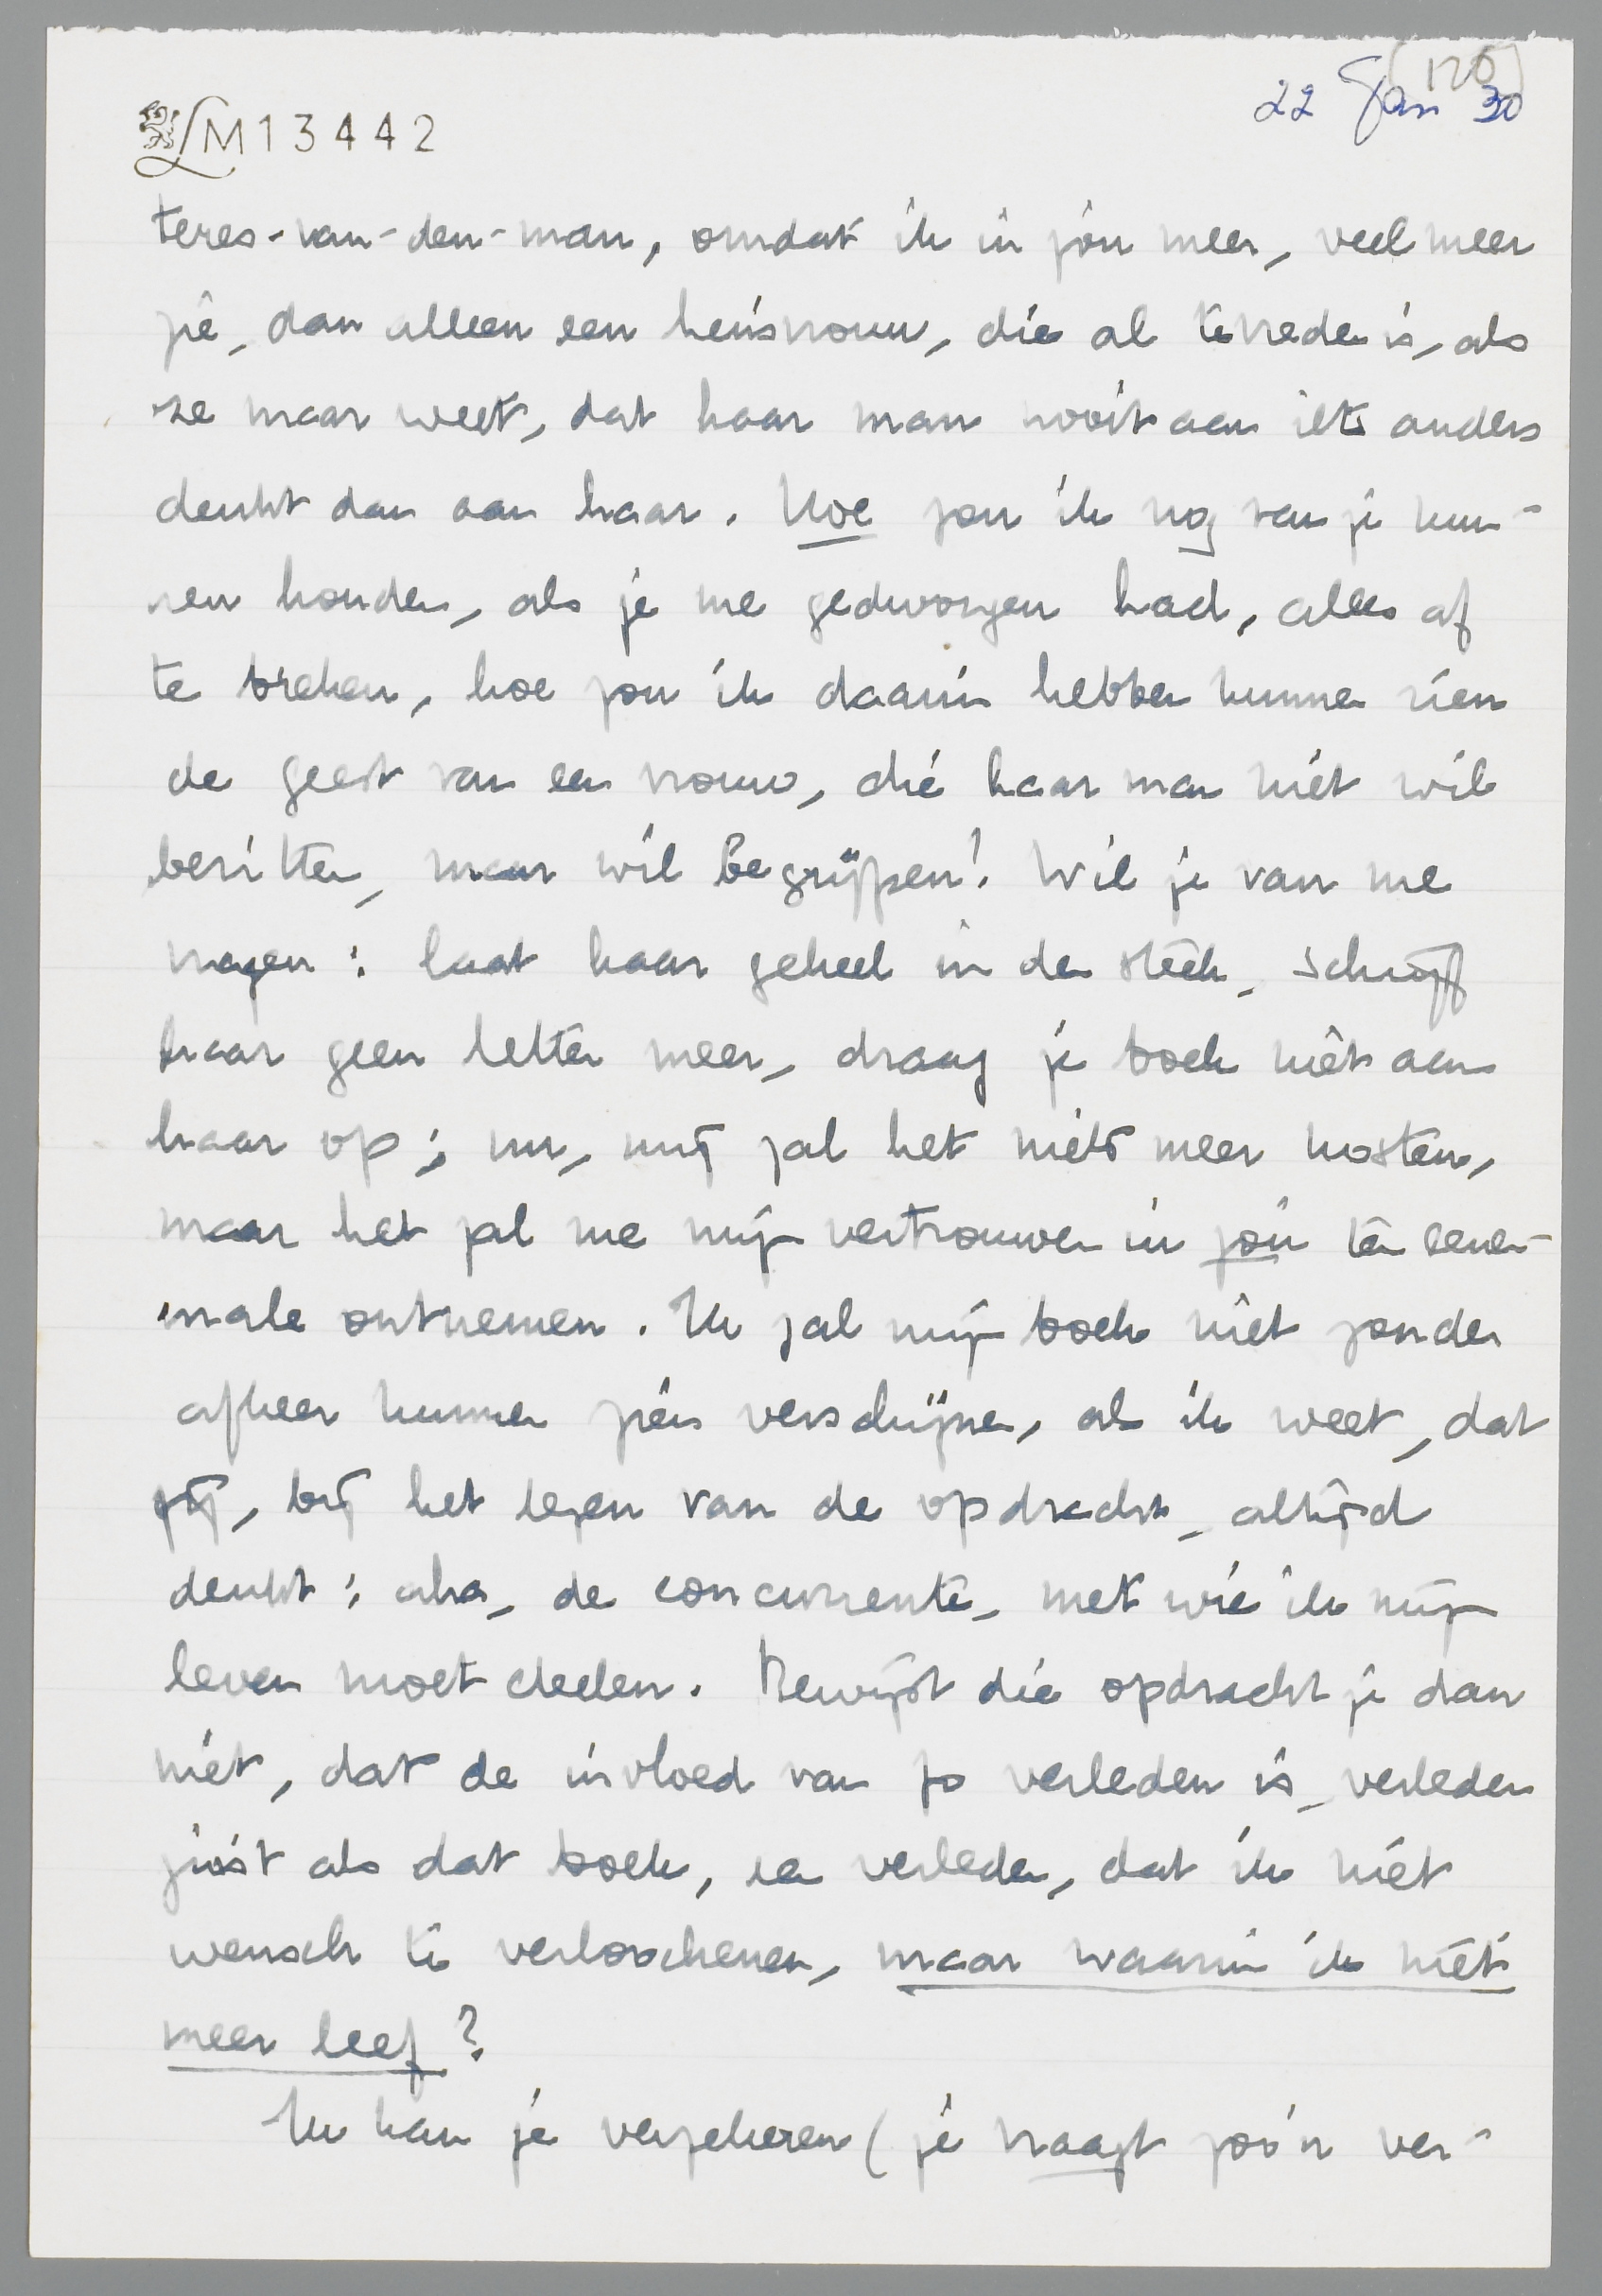 (120)
22 Jan 30
LM13442
teres-van-den-man, omdat ik in jou meer, veel meer
zie, dan alleen een huisvrouw, die al tevreden is, als
ze maar weet, dat haar man nooit aan iets anders
denkt dan aan haar. Hoe zou ik nog van je kun-
nen houden, als je me gedwongen had, alles af
te breken, hoe zou ik daarin hebben kunnen zien
de geest van een vrouw, die haar man niet wil
bezitten, maar wil begrijpen! Wil je van me
vragen: laat haar geheel in den steek, schrijf
haar geen letter meer, draag je boek niet aan
haar op; nu, mij zal het niets meer kosten,
maar het zal me mijn vertrouwen in jou ten eenen-
male ontnemen. Ik zal mijn boek niet zonder
afkeer kunnen zien verschijnen, als ik weet, dat
jij, bij het lezen van de opdracht, altijd
denkt: aha, de concurrente, met wie ik mijn
leven moet deelen. Bewijst die opdracht je dan
niet, dat de invloed van Jo verleden is, verleden
juist als dat boek, een verleden, dat ik niet
wensch te verloochenen, maar waarin ik niet
meer leef?
Ik kan je verzekeren (je vraagt zoo'n ver-